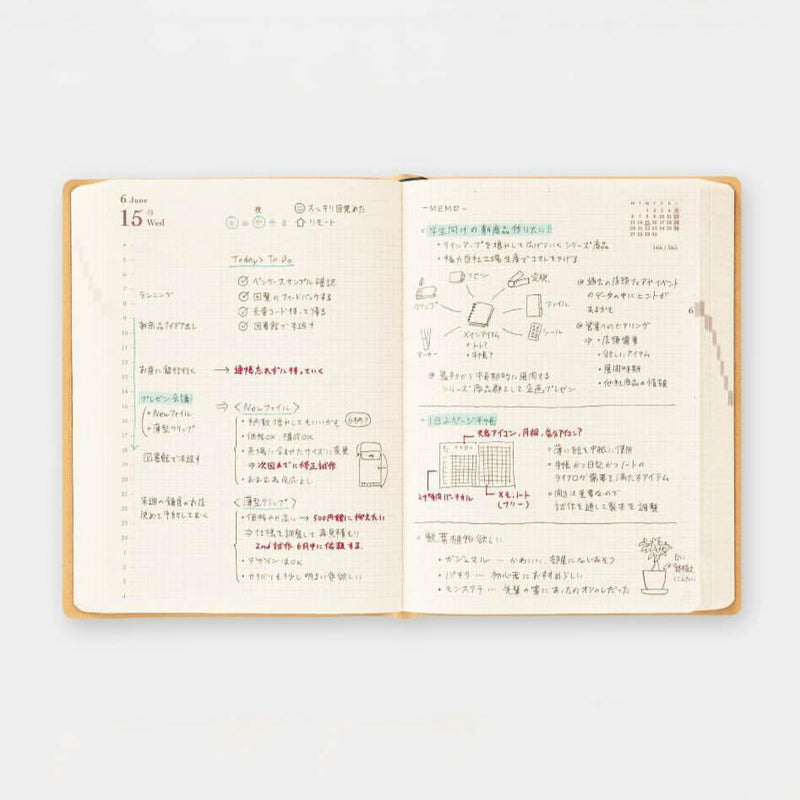 6 June
15 Wed
夜
スッキリ目覚めた
リモート
Today's To Do
ペンケースサンプル確認
回覧のフィードバックする
図書館で本返す
4
5
6
7
8
9
10
11
12
13
14
15
16
17
18
19
20
21
22
23
24
1
2
3
4
ランニング
新商品アイデア出し
お昼に銀行行く → 通帳忘れずに持っていく
プレゼン会議
・Newファイル
・薄型クリップ
図書館で本返す
来週の鎌倉のお店
決めて予約しておく
⇒〈Newファイル〉
・柄数増やしてもいいかも
6柄?
・価格OK、構成OK
・売場に合わせたサイズに変更
⇒ 次回までに修正試作
・おおむね反応よし
⇒〈薄型クリップ〉
・価格やや高い → 500円程に抑えたい
⇒仕様を調整して再見積もり
2nd試作 6月中に依頼する。
・デザインはOK
・カラバリもう少し明るい色欲しい
-MEMO-
M T W T F S S
1 2 3 4 5
6 7 8 9 10 11 12
13 14 15 16 17 18 19
20 21 22 23 24 25 26
27 28 29 30
166/365
学生向けの新商品作りたい!
・ラインアップを増やして広げていくシリーズ商品
・極力自社工場生産でコストを下げる
フセン
定規
クリップ
ファイル
マーカー
シール
メインアイテム
・ノート?
・手帳?
過去の店頭フェアやイベント
のデータの中にヒントが
あるかも
営業へのヒアリング
⇒ ・店頭需要
・欲しいアイテム
・展開時期
・他社商品の情報
6
シリーズ商品群として企画プレゼン
1日2ページ手帳
天気アイコン、月相、気分アイコン?
24時間バーチカル
メモ、ノート
(フリー)
・薄い紙を中紙に使用
・手帳かつ日記かつノートの
ライフログ需要を満たすアイテム
・開きは重要なので
試作を通して製本を調整
観葉植物欲しい
・ガジュマル … かわいい、部屋になじみそう
・パキラ … 初心者におすすめらしい
・モンステラ … 先輩の家にあったのオシャレだった
白い
鉢植え
にしたい